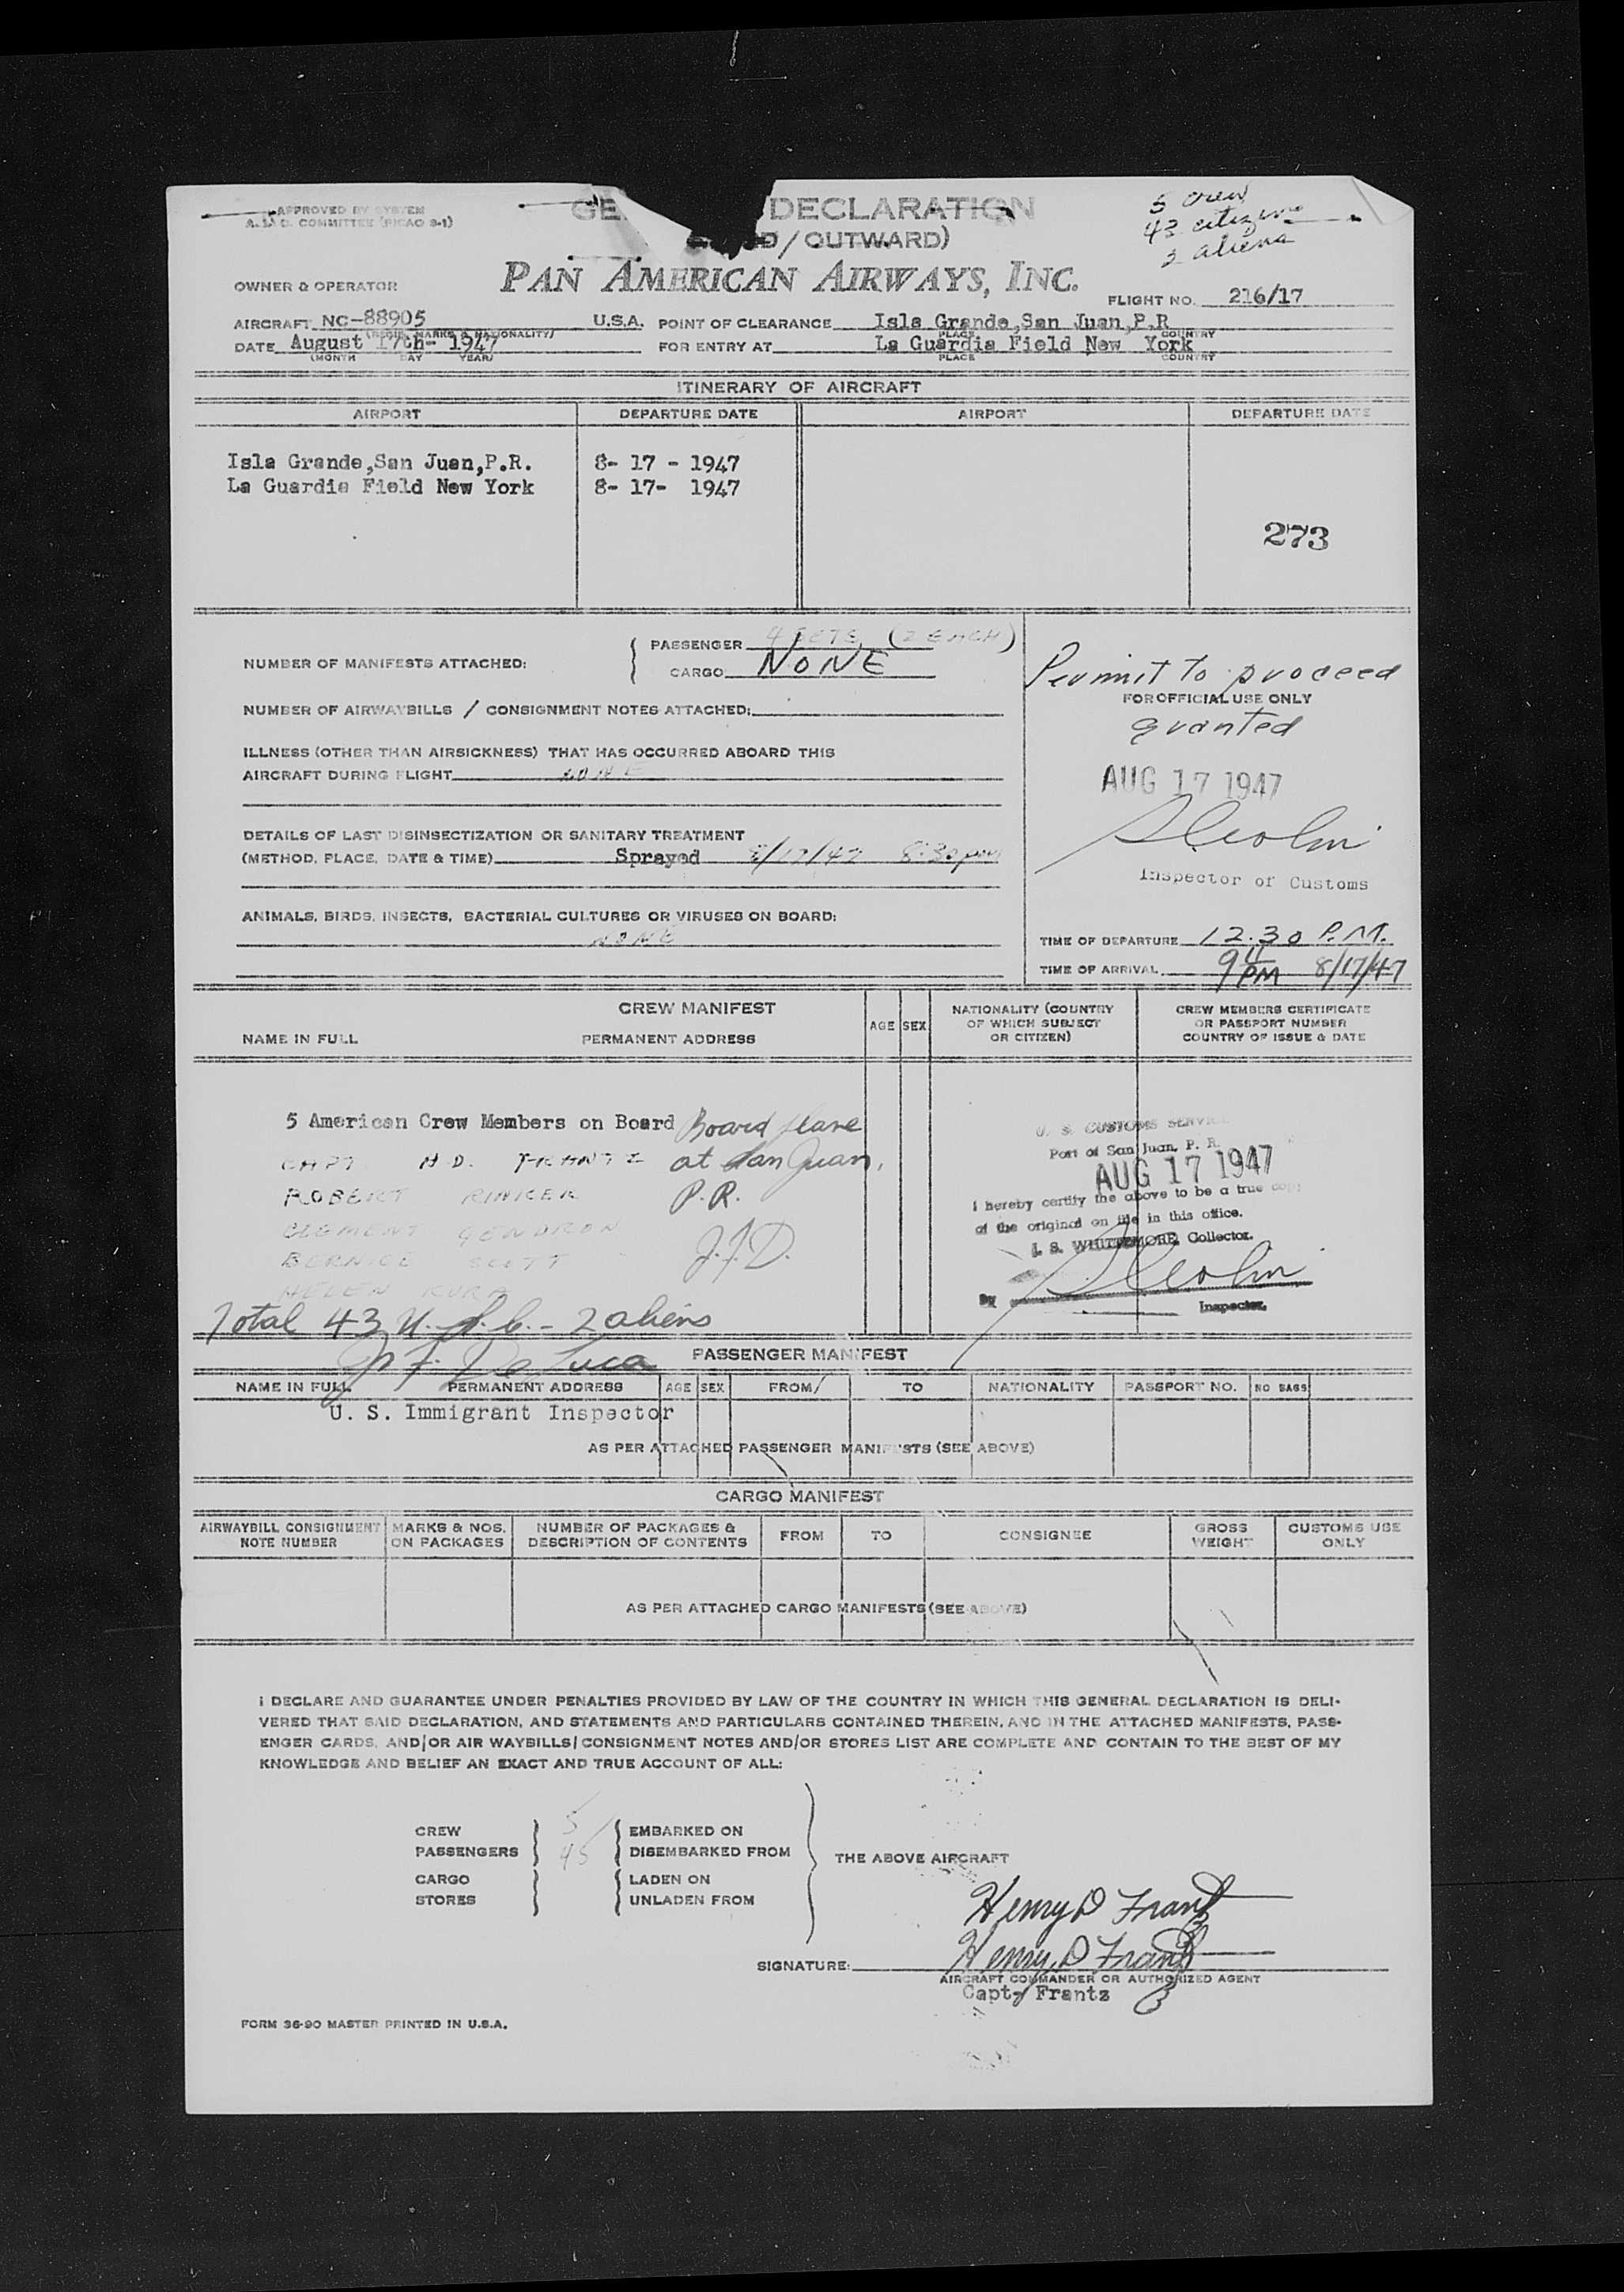 APPROVED BY SYSTEM
A. I. & D. COMMITTEE (PICAO 9-1)
5 crew
43 citizens
2 aliens
DECLARATION
/ OUTWARD)
OWNER & OPERATOR
PAN AMERICAN AIRWAYS, INC.
FLIGHT NO. 216/17
AIRCRAFT NC-88905 U.S.A. POINT OF CLEARANCE Isla Grande,San Juan,P.R
MARKS & NATIONALITY) PLACE COUNTRY
DATE August 17th- 1947 FOR ENTRY AT La Guardia Field New York
(MONTH DAY YEAR) PLACE COUNTRY
ITINERARY OF AIRCRAFT
AIRPORT DEPARTURE DATE AIRPORT DEPARTURE DATE
Isla Grande,San Juan,P.R. 8- 17 - 1947
La Guardia Field New York 8- 17- 1947
273
NUMBER OF MANIFESTS ATTACHED:
PASSENGER 4 SETS (2 EACH)
CARGO NONE
NUMBER OF AIRWAYBILLS / CONSIGNMENT NOTES ATTACHED:
ILLNESS (OTHER THAN AIRSICKNESS) THAT HAS OCCURRED ABOARD THIS
AIRCRAFT DURING FLIGHT NONE
DETAILS OF LAST DISINSECTIZATION OR SANITARY TREATMENT
(METHOD, PLACE, DATE & TIME) Sprayed 8/17/47 8:30 pm
ANIMALS, BIRDS, INSECTS, BACTERIAL CULTURES OR VIRUSES ON BOARD:
NONE
Permit to proceed
FOR OFFICIAL USE ONLY
granted
AUG 17 1947
Inspector of Customs
TIME OF DEPARTURE 12.30 P.M.
TIME OF ARRIVAL 9 PM 8/17/47
CREW MANIFEST
NAME IN FULL PERMANENT ADDRESS AGE SEX
NATIONALITY (COUNTRY
OF WHICH SUBJECT
OR CITIZEN)
CREW MEMBERS CERTIFICATE
OR PASSPORT NUMBER
COUNTRY OF ISSUE & DATE
5 American Crew Members on Board Board plane
CAPT H.D. FRANTZ at San Juan,
ROBERT RINKER P.R.
CLEMENT GENDRON
BERNICE SCOTT J.F.D.
HELEN KURA
Total 43 U.S.C. - 2 aliens
U. S. CUSTOMS SERVICE
Port of San Juan, P. R.
AUG 17 1947
I hereby certify the above to be a true copy
of the original on file in this office.
I. S. WHITTEMORE, Collector.
By
Inspector.
J F. De Luca
PASSENGER MANIFEST
NAME IN FULL PERMANENT ADDRESS AGE SEX FROM TO NATIONALITY PASSPORT NO. NO BAGS
U. S. Immigrant Inspector
AS PER ATTACHED PASSENGER MANIFESTS (SEE ABOVE)
CARGO MANIFEST
AIRWAYBILL CONSIGNMENT
NOTE NUMBER
MARKS & NOS.
ON PACKAGES
NUMBER OF PACKAGES &
DESCRIPTION OF CONTENTS
FROM TO CONSIGNEE
GROSS
WEIGHT
CUSTOMS USE
ONLY
AS PER ATTACHED CARGO MANIFESTS (SEE ABOVE)
I DECLARE AND GUARANTEE UNDER PENALTIES PROVIDED BY LAW OF THE COUNTRY IN WHICH THIS GENERAL DECLARATION IS DELI-
VERED THAT SAID DECLARATION, AND STATEMENTS AND PARTICULARS CONTAINED THEREIN, AND IN THE ATTACHED MANIFESTS, PASS-
ENGER CARDS, AND/OR AIR WAYBILLS/CONSIGNMENT NOTES AND/OR STORES LIST ARE COMPLETE AND CONTAIN TO THE BEST OF MY
KNOWLEDGE AND BELIEF AN EXACT AND TRUE ACCOUNT OF ALL:
CREW 5 EMBARKED ON
PASSENGERS 45 DISEMBARKED FROM
CARGO LADEN ON
STORES UNLADEN FROM
THE ABOVE AIRCRAFT
Henry D Frantz
SIGNATURE: Henry D Frantz
AIRCRAFT COMMANDER OR AUTHORIZED AGENT
Capt. Frantz
FORM 36-90 MASTER PRINTED IN U.S.A.